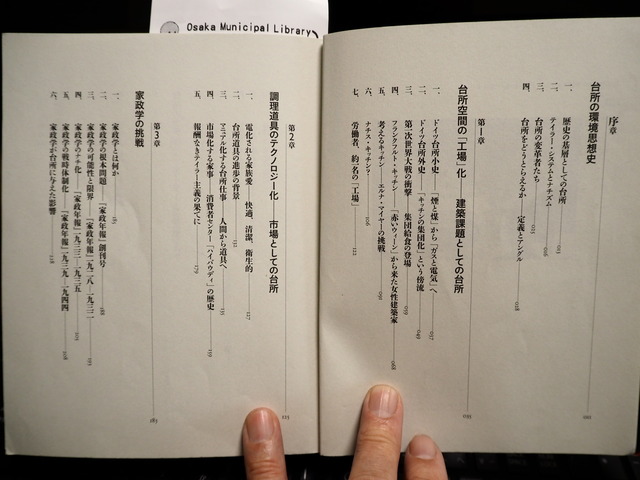 Osaka Municipal Library
序章
台所の環境思想史
一、歴史の基層としての台所
二、テイラー・システムとナチズム
三、台所の変革者たち
四、台所をどうとらえるか 定義とアングル
018
第1章
台所空間の「工場」化――建築課題としての台所
一、ドイツ台所小史――「煙と煤」から「ガスと電気」へ
037
二、ドイツ台所外史――「キッチンの集団化」という傍流
049
三、第一次世界大戦の衝撃 集団給食の登場
059
四、フランクフルト・キッチン――「赤いウィーン」から来た女性建築家
068
五、考えるキッチン エルナ・マイヤーの挑戦
090
六、ナチス・キッチン?
106
七、労働者、約一名の「工場」
112
第2章
調理道具のテクノロジー化 市場としての台所
115
一、電化される家族愛 快適、清潔、衛生的
117
二、台所道具の進歩の背景
132
三、マニュアル化する台所仕事――人間から道具へ
四、市場化する家事 消費者センター「ハイバウディ」の歴史
159
五、報酬なきテイラー主義の果てに
179
第3章
家政学の挑戦
183
一、家政学とは何か
185
二、家政学の根本問題――『家政年報』創刊号
188
三、家政学の可能性と限界――『家政年報』一九二八―一九三二
193
四、家政学のナチ化――『家政年報』一九三三―一九三五
五、家政学の戦時体制化――『家政年報』一九三九―一九四四
六、家政学が台所に与えた影響
218